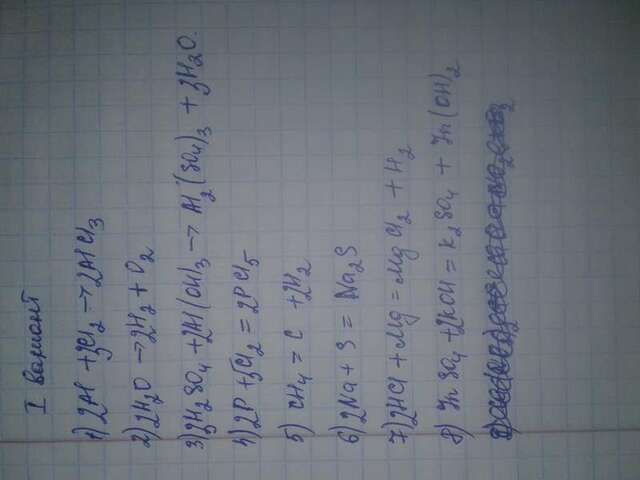 I вариант
1) 2Al + 3Cl₂ → 2AlCl₃
2) 2H₂O → 2H₂ + O₂
3) 3H₂SO₄ + 2Al(OH)₃ → Al₂(SO₄)₃ + 3H₂O
4) 2P + 5Cl₂ = 2PCl₅
5) CH₄ = C + 2H₂
6) 2Na + S = Na₂S
7) 2HCl + Mg = MgCl₂ + H₂
8) Zn SO₄ + 2KOH = K₂SO₄ + Zn(OH)₂